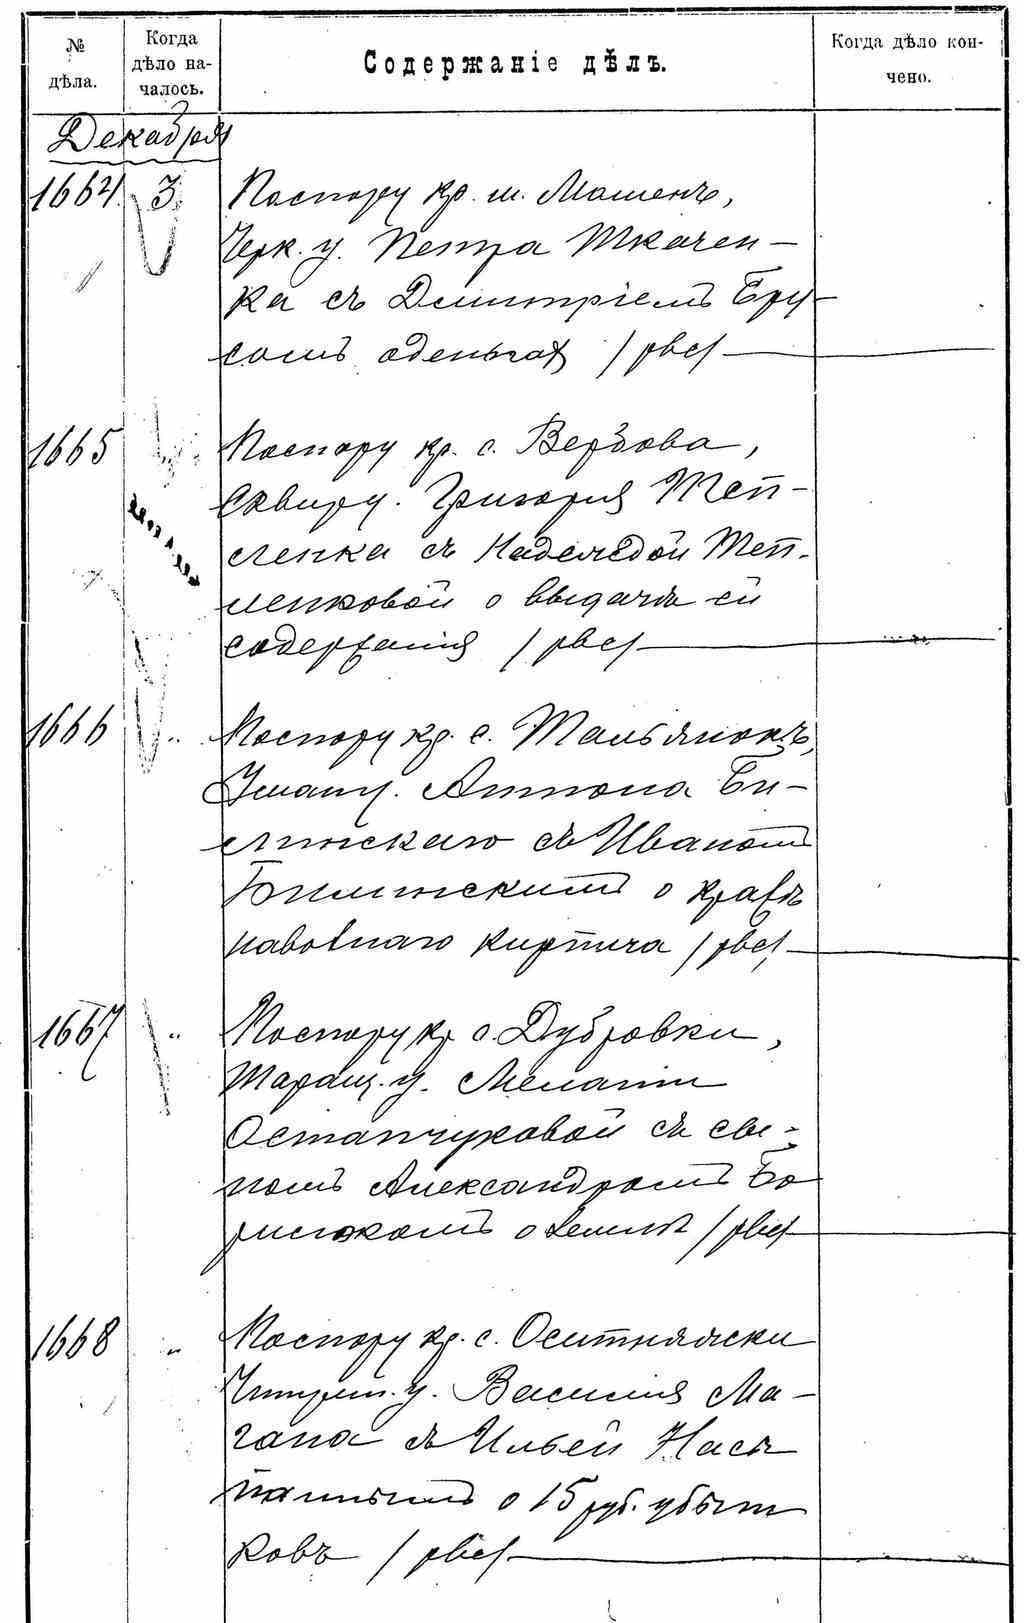 № дѣла.
Когда дѣло началось.
Содержаніе дѣлъ.
Когда дѣло кончено.
Декабря
1664. 3. По спору кр. м. Мошенъ,
Черк. у. Петра Ткачен-
ка съ Димитріемъ Бру-
сомъ о деньгах
1665 По спору кр. с. Вербова,
Сквир у. Григорія Теп-
ленка съ Надеждой Теп-
ленковой о выдачѣ ей
содержанія
1666 " По спору кр. с. Тальянокъ,
Уман у. Антона Би-
линскаго съ Иваном
Билинским о кражѣ
кирпича
1667 " По спору кр с. Дубровки,
Таращ. у. Мелании
Остапчуковой съ сы-
номъ Александромъ Бо
рисюкомъ о землѣ
1668 " По спору кр. с. Оситняжски
Чигирин. у. Василія Ма-
гана съ Ильей
о 15 руб. убыт
ковъ